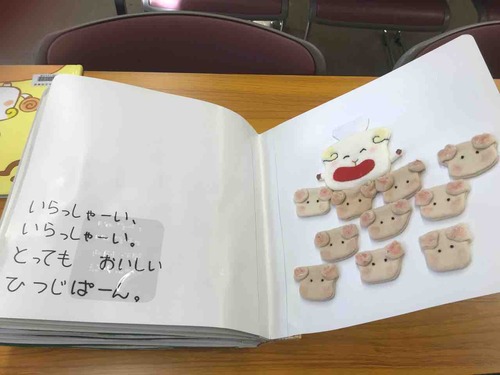 いらっしゃーい、
いらっしゃーい。
とっても おいしい
ひつじぱーん。